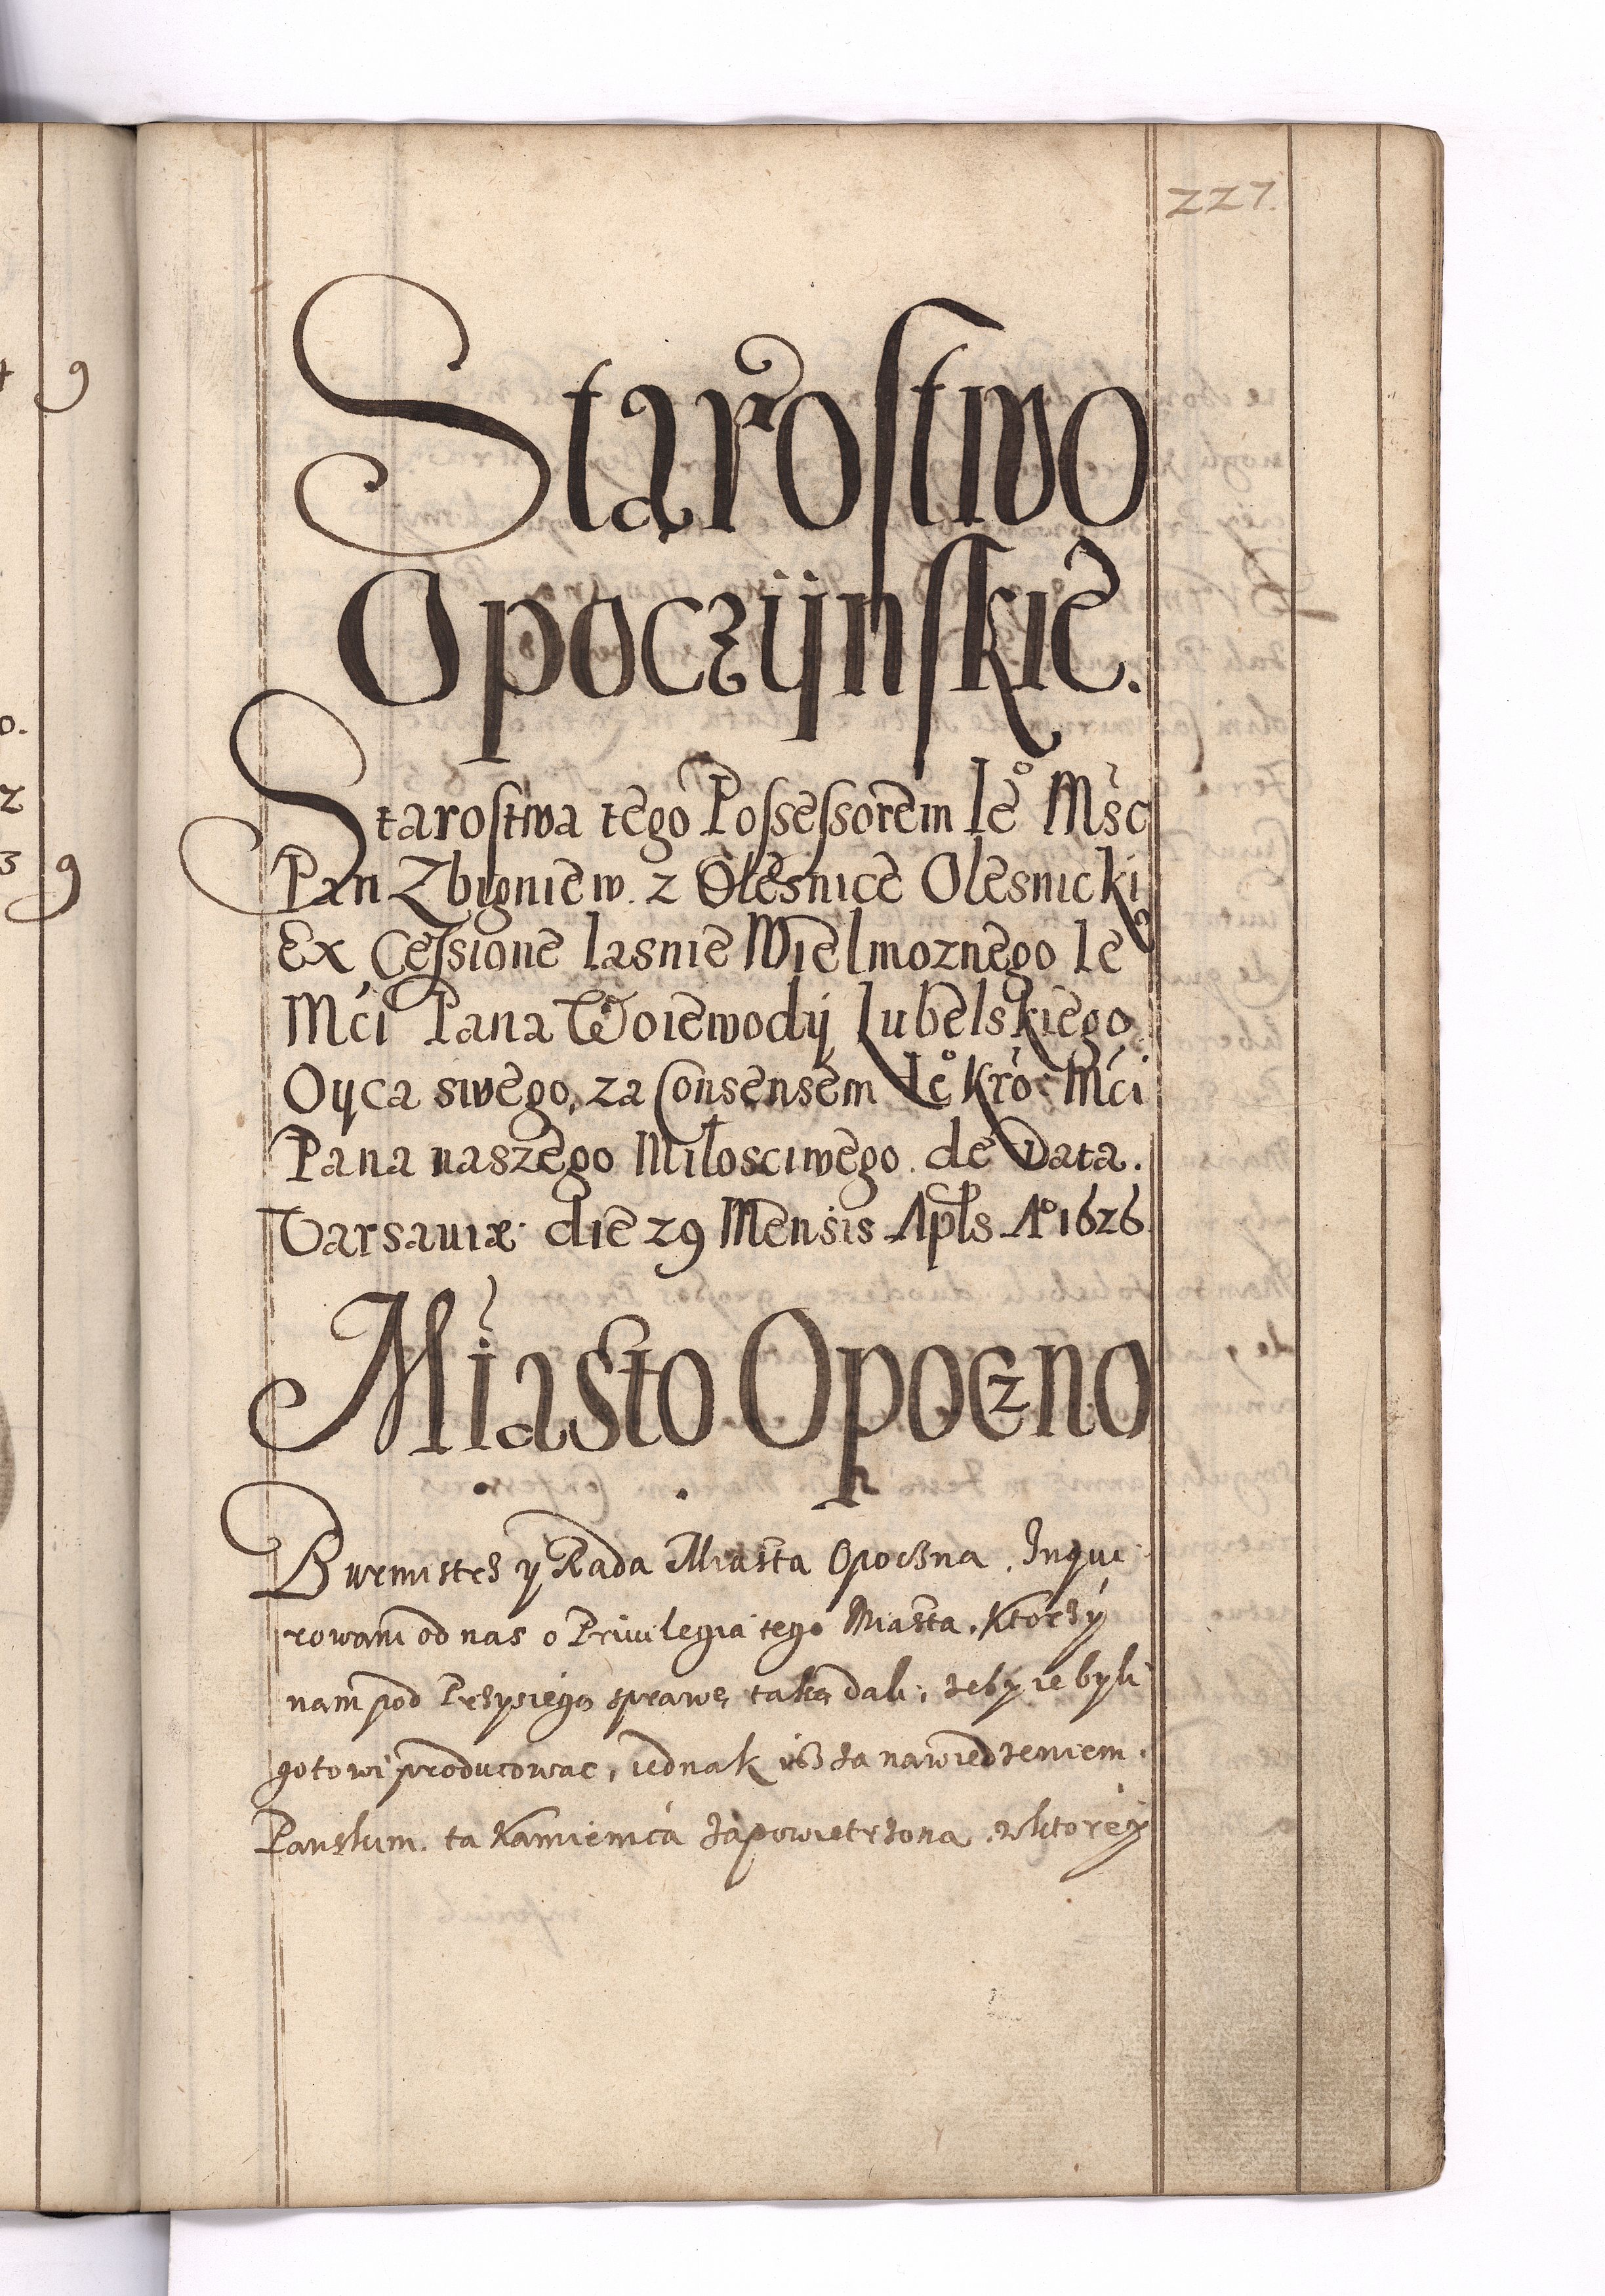 227.
Starostwo
Opoczÿnskie.
Starostwa tego Possessorem Ieº Mśc
Pan Zbigniew z Olesnice Olesnicki
Ex Cessione Iasnie Wielmoznego Ie
Mći Pana Woiewodÿ Lubelskiego
Oÿca swego, za Consensem Ieº Kro: Mći
Pana naszego Miłosciwego. de Data.
Varsauiæ. die 29 Mensis Apłs Aº 1626
Miasto Opoczno
Burmistrz ÿ Rada Miasta Opoczna. Inqui-
rowani od nas o Priuilegia tego Miasta. Ktorzÿ
nam pod Przysięgą sprawę taką dali; zeby ie byli
gotowi producowac, iednak isz za nawiedzeniem.
Panskim. ta Kamienica zapowietrzona. w ktoreÿ